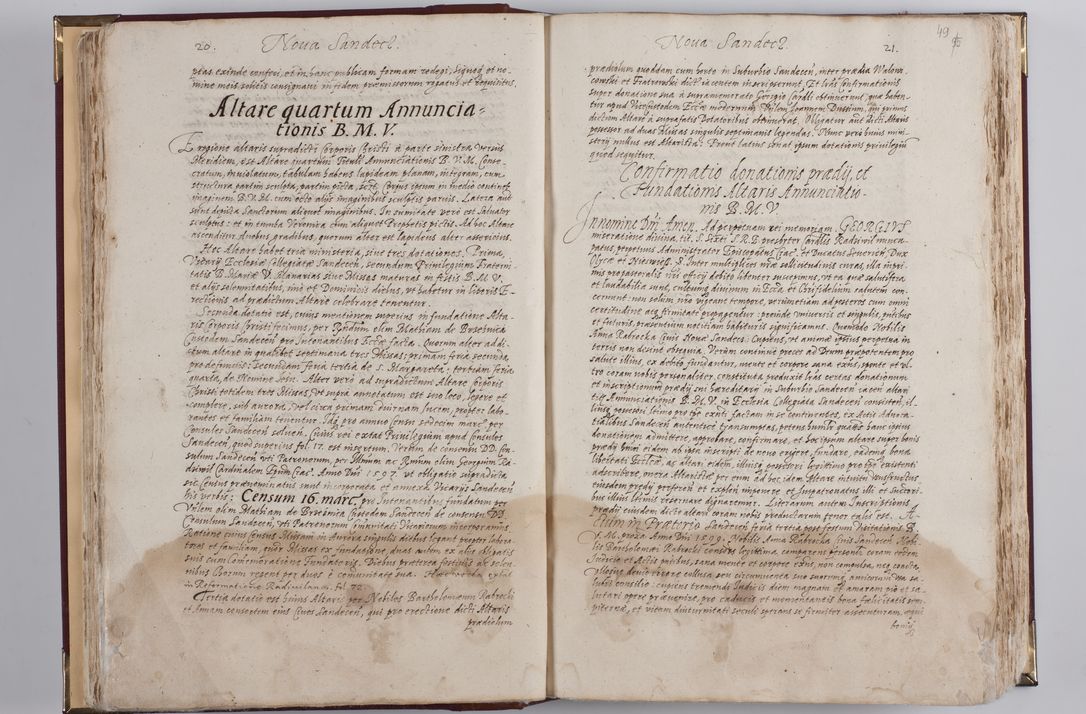 20. Noua Sandecz.
ptas exinde confeci, et in hanc publicam formam redegi, signoq. et no-
mine meis solitis consignaui in fidem præmissorum rogatus et requisitus.
Altare quartum Annuncia-
tionis B. M. V.
E regione altaris supradicti Corporis Christi à parte sinistra versus
Meridiem, est Altare quartum Tituli Annunciationis B. V. M. Conse-
cratum, inuiolatum, tabulam habens lapideam planam, integram, cum
structura partim sculpta, partim picta, Corpus ipsum in medio continet
imaginem B. V. M. cum octo alijs imaginibus sculptis paruis. Latera aut
sunt depicta Sanctorum aliquot imaginibus. In sumitate vero est Saluator
sculptus: et in tumba Veronica cum aliquot Prophetis pictis. Ad hoc Altare
ascenditur duobus gradibus, quorum alter est lapideus alter assericius.
Hoc Altare habet tria ministeria, siue tres dotationes. Prima,
Vicarij Ecclesiæ Collegiatæ Sandecen, secundum Priuilegium Fraterni-
tatis B. Mariæ V. Planarias siue Missas maturas in festis B. M. V.
et alijs solemnitatibus, imo et Dominicis diebus, vt habetur in literis E-
rectionis ad prædictum Altare celebrare tenentur.
Secunda dotatio est, cuius mentionem superius in fundatione Alta-
ris Corporis Christi fecimus, per Rndum olim Mathiam de Brzeznica
Custodem Sandecen pro Intenantibus Ecclæ facta. Quorum alter ad di-
ctum altare in qualibet septimana tres Missas; primam feria secunda,
pro defunctis: secundam feria tertia de S. Margareta: tertiam feria
quarta, de Nomine Iesu. Alter vero ad supradictum Altare Corporis
Christi totidem tres Missas, vt supra annotatum est suo loco, legere et
complere, sub aurora, vel circa primam diurnam lucem, propter labo-
rantes et familiam tenentur. Idq. pro annuo Censu sedecim marc. per
Consules Sandecen soluen. Cuius rei extat Priuilegium apud Consules
Sandecen, quod superius fol. 17. est insertum. Verum de consensu DD. Con-
sulum Sandecen vti Patronorum, per Illmum ac Rmum olim Georgium Ra-
diuiol Cardinalem Eptum Crac. Anno Dni 1597. vt obligatio supradicta
sic Census præmemoratus sunt incorporata et annexa Vicarijs Sandecen
his verbis: Censum 16. marc. pro Intenantibus fundatum per
Vnlem olim Mathiam de Brzeznica Custodem Sandecen de consensu DD.
Consulum Sandecen, vti Patronorum Comunitati Vicariorum incorporamus,
Ratione cuius Census Missam in Aurora singulis diebus legant propter labora-
tores et familiam, quinq. Missas ex fundatione, duas autem ex alijs obligatis
suis cum Comemoratione Fundatoris. Diebus præterea festiuis ac solen-
nibus Chorum regent per duos è comunitate sua. Hæc verba extat
in Reformatione Radiuiliana fol. 70.
Tertia dotatio est huius Altaris per Nobiles Bartholomæum Rabrocki
et Annam consortem eius Ciues Sandecen, qui pro erectione dicti Altaris
prædiolum
Noua Sandecz. 21.
49
95
prædiolum quoddam cum horto in Suburbio Sandecen, inter prædia Walowi-
cowski et Fiatrowski dicta iacentem inscripserunt. Et litras Confirmationis
super donatione sua à supramemorato Georgio Cardli obtinuerunt, quæ haben-
tur apud Vicecustodem Ecclæ modernum Vnlem Ioannem Dussium, qui primus
dictum Altare à suprafatis Dotatoribus obtinuerat. Obligatur aut dicti Altaris
possessor ad duas Missas singulis septimanis legendas. Nunc pro huius mini-
sterij nullus est Altarista. Prout latius sonat ipsum dotationis priuilegium
quod sequitur.
Confirmatio donationis prædij, et
Fundationis Altaris Annunciatio-
nis B. M. V.
In nomine Dni Amen. Ad perpetuam rei memoriam. GEORGIVS
miseratione diuina, tit. S. Sixti S. R. E. presbiter Cardlis Radziuil nuncu-
patus, perpetuus Administrator Episcopatus Crac. et Ducatus Seuerien, Dux
Olycæ et Nieswies. &. Inter multiplices nræ sollicitudinis curas, illa impri-
mis propastoralis nri officij debito libenter suscepimus, vt ea quæ salutifera
et laudabilia sunt, cultumq. diuinum in Ecclia et Christi fidelium salutem con-
cernunt: non solum nro vigeant tempore, verumetiam ad posteros cum omni
certitudine ac firmitate propagentur: proinde vniuersis et singulis, pntibus
et futuris, præsentium notitiam habituris significamus. Quomodo Nobilis
Anna Rabrocka Ciuis Nouæ Sandecz: Cupiens, vt animæ ipsius perpetua in
terris non desint obsequia. Verùm continuè preces ad Deum præpotentem pro
salute illius, ex debito fundantur, mente et corpore sana exns, sponte et vl-
tro coram nobis personaliter constituta produxit litras certas donationum
et inscriptionum prædij sui hæreditarij in Suburbio Sandecen iacen altari
tit: Annunciationis B. M. V. in Ecclesia Collegiata Sandecen consisten, il-
liusq. possessori ltimo pro tpe exnti factam in se continentes, ex Actis Aduoca-
tialibus Sandecen autentice transumptas, petens humlr quatenus hanc ipsius
donationem admittere, approbare, confirmare, et hoc ipsum altare super bonis
prædij huius eidem ab ipsa inscripti de nouo erigere, fundare, eademq. bona
libertati Ecclicæ, ac altari eidem, illiusq. possessori legitimo pro tpe existenti
adscribere, neque Altaristæ per eum ad hocidem Altare intuitu vsusfructus
eiusdem prædij preferen et explen imponere et Iuspatronatus illi et succeso-
ribus illius ltimis reseruare dignaremur. Literarum autem Inscriptionis
prædij eiusdem dicto altari coram nobis productarum tenor talis est. A-
ctum in Prætorio Sandecen feria tertia post festum Visitationis B.
V. M. proxa Anno Dni 1599. Nobilis Anna Rabrocka Ciuis Sandecen Nobi-
lis Bartholomæi Rabrocki consors legitima, comparens personlr coram eodem
Iudicio et Actis pntibus, sana mente et corpore exns, non compulsa, nec coacta,
illoque deuio errore collusa seu circumuenta, suo suorumq. amicorum vsa sa-
lubri consilio: cupiens tremendi Iudicij diem magnam et amaram pijs et sa-
lutari opere præuenire, pro caducis et momentaneis bona fælicitatis sem-
piternæ, et vitam diuturnitati seculi sperans se firmiter assecuturam, omni
bonis